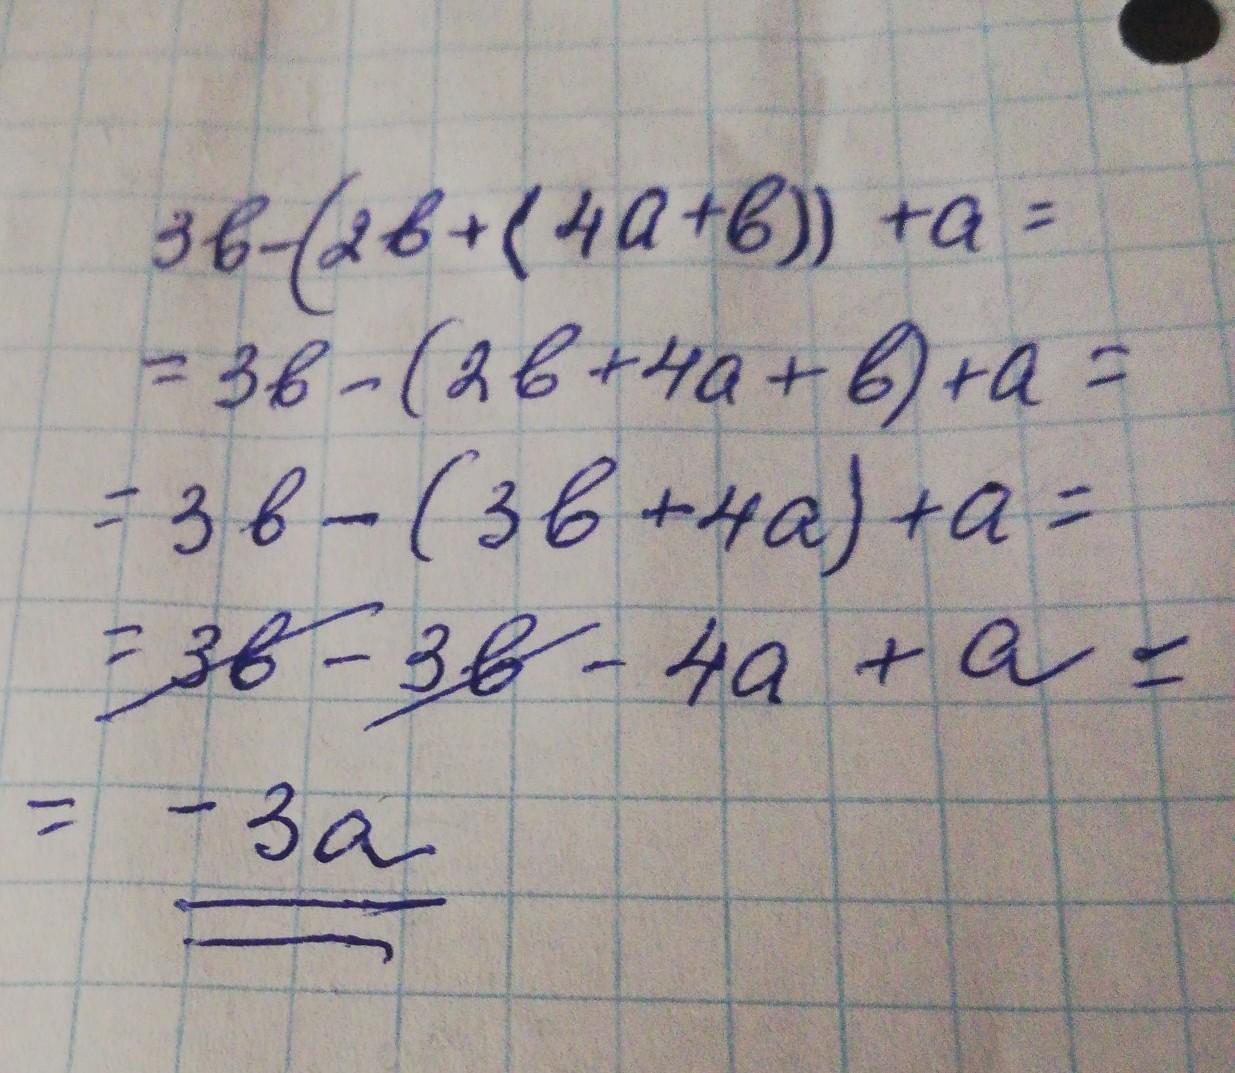 3b-(2b+(4a+b))+a=
=3b-(2b+4a+b)+a=
=3b-(3b+4a)+a=
=3b-3b-4a+a=
=-3a